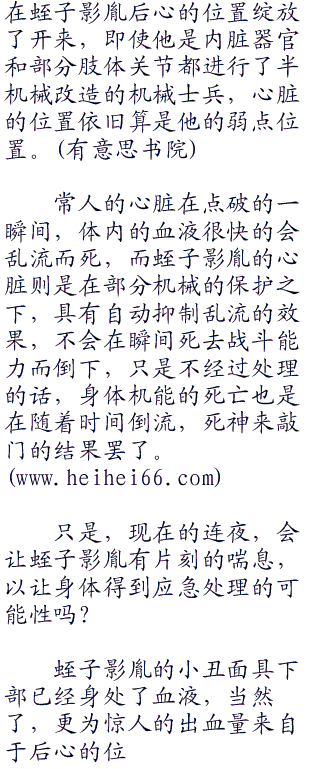 在蛭子影胤后心的位置绽放
了开来，即使他是内脏器官
和部分肢体关节都进行了半
机械改造的机械士兵，心脏
的位置依旧算是他的弱点位
置。(有意思书院)
常人的心脏在点破的一
瞬间，体内的血液很快的会
乱流而死，而蛭子影胤的心
脏则是在部分机械的保护之
下，具有自动抑制乱流的效
果，不会在瞬间死去战斗能
力而倒下，只是不经过处理
的话，身体机能的死亡也是
在随着时间倒流，死神来敲
门的结果罢了。
(www.heihei66.com)
只是，现在的连夜，会
让蛭子影胤有片刻的喘息，
以让身体得到应急处理的可
能性吗？
蛭子影胤的小丑面具下
部已经身处了血液，当然
了，更为惊人的出血量来自
于后心的位